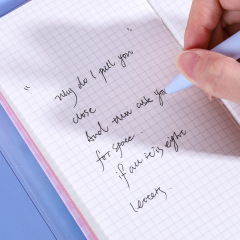 "why do I pull you"
close
And then ask you
for space.
if all it is eight
letters.